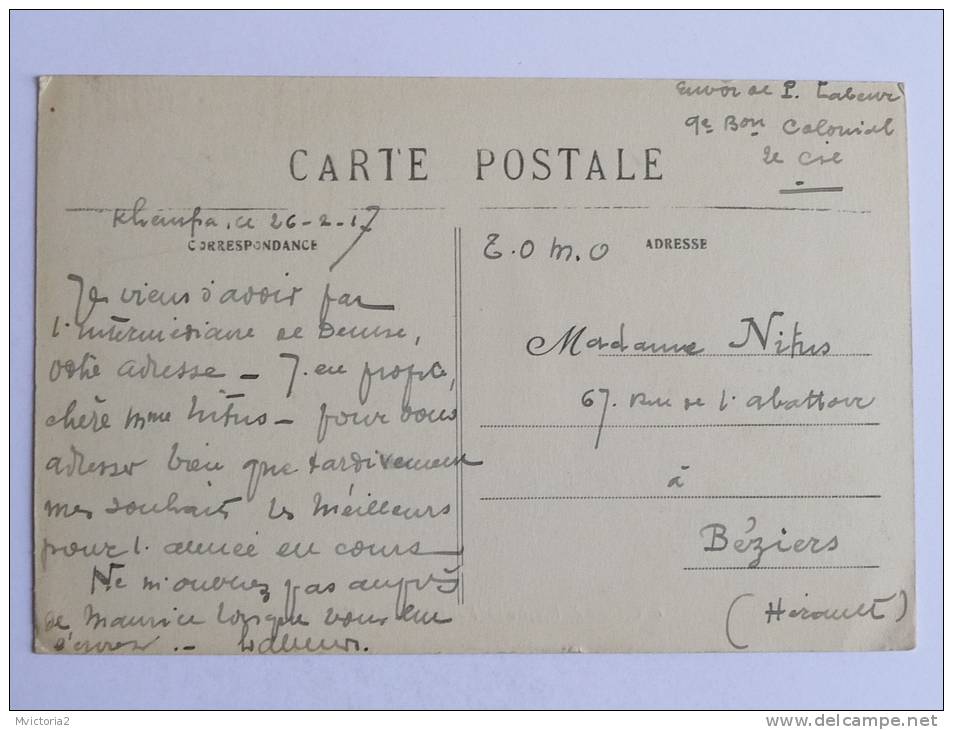 Envoi de P. Labeur
9e Bon Colonial
2e Cie
CARTE POSTALE
ce 26-2-17
CORRESPONDANCE
Je viens d'avoir par
l'intermédiaire de Denise,
votre adresse - J'en profite,
chère Mme Nitus - pour vous
adresser bien que tardivement
mes souhaits les meilleurs
pour l'année en cours
Ne m'oubliez pas auprès
de Maurice lorsque vous lui
écrirez. - Labeur.
T.O M.O
ADRESSE
Madame Nitus
67. Rue de l'abattoir
à
Béziers
(Hérault)
Mvictoria2
delcampe.net